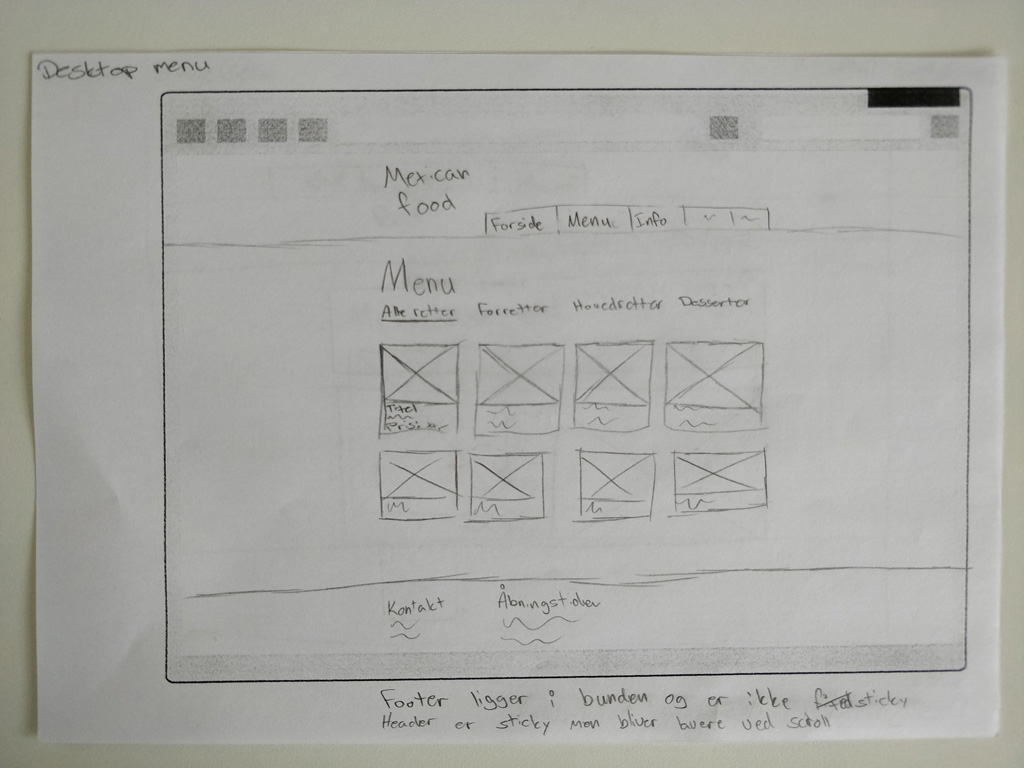 Desktop menu
Mexican
food
Forside Menu Info
Menu
Alle retter Forretter Hovedretter Desserter
Titel
Priser
Kontakt Åbningstider
Footer ligger i bunden og er ikke sticky
Header er sticky men bliver lavere ved scroll